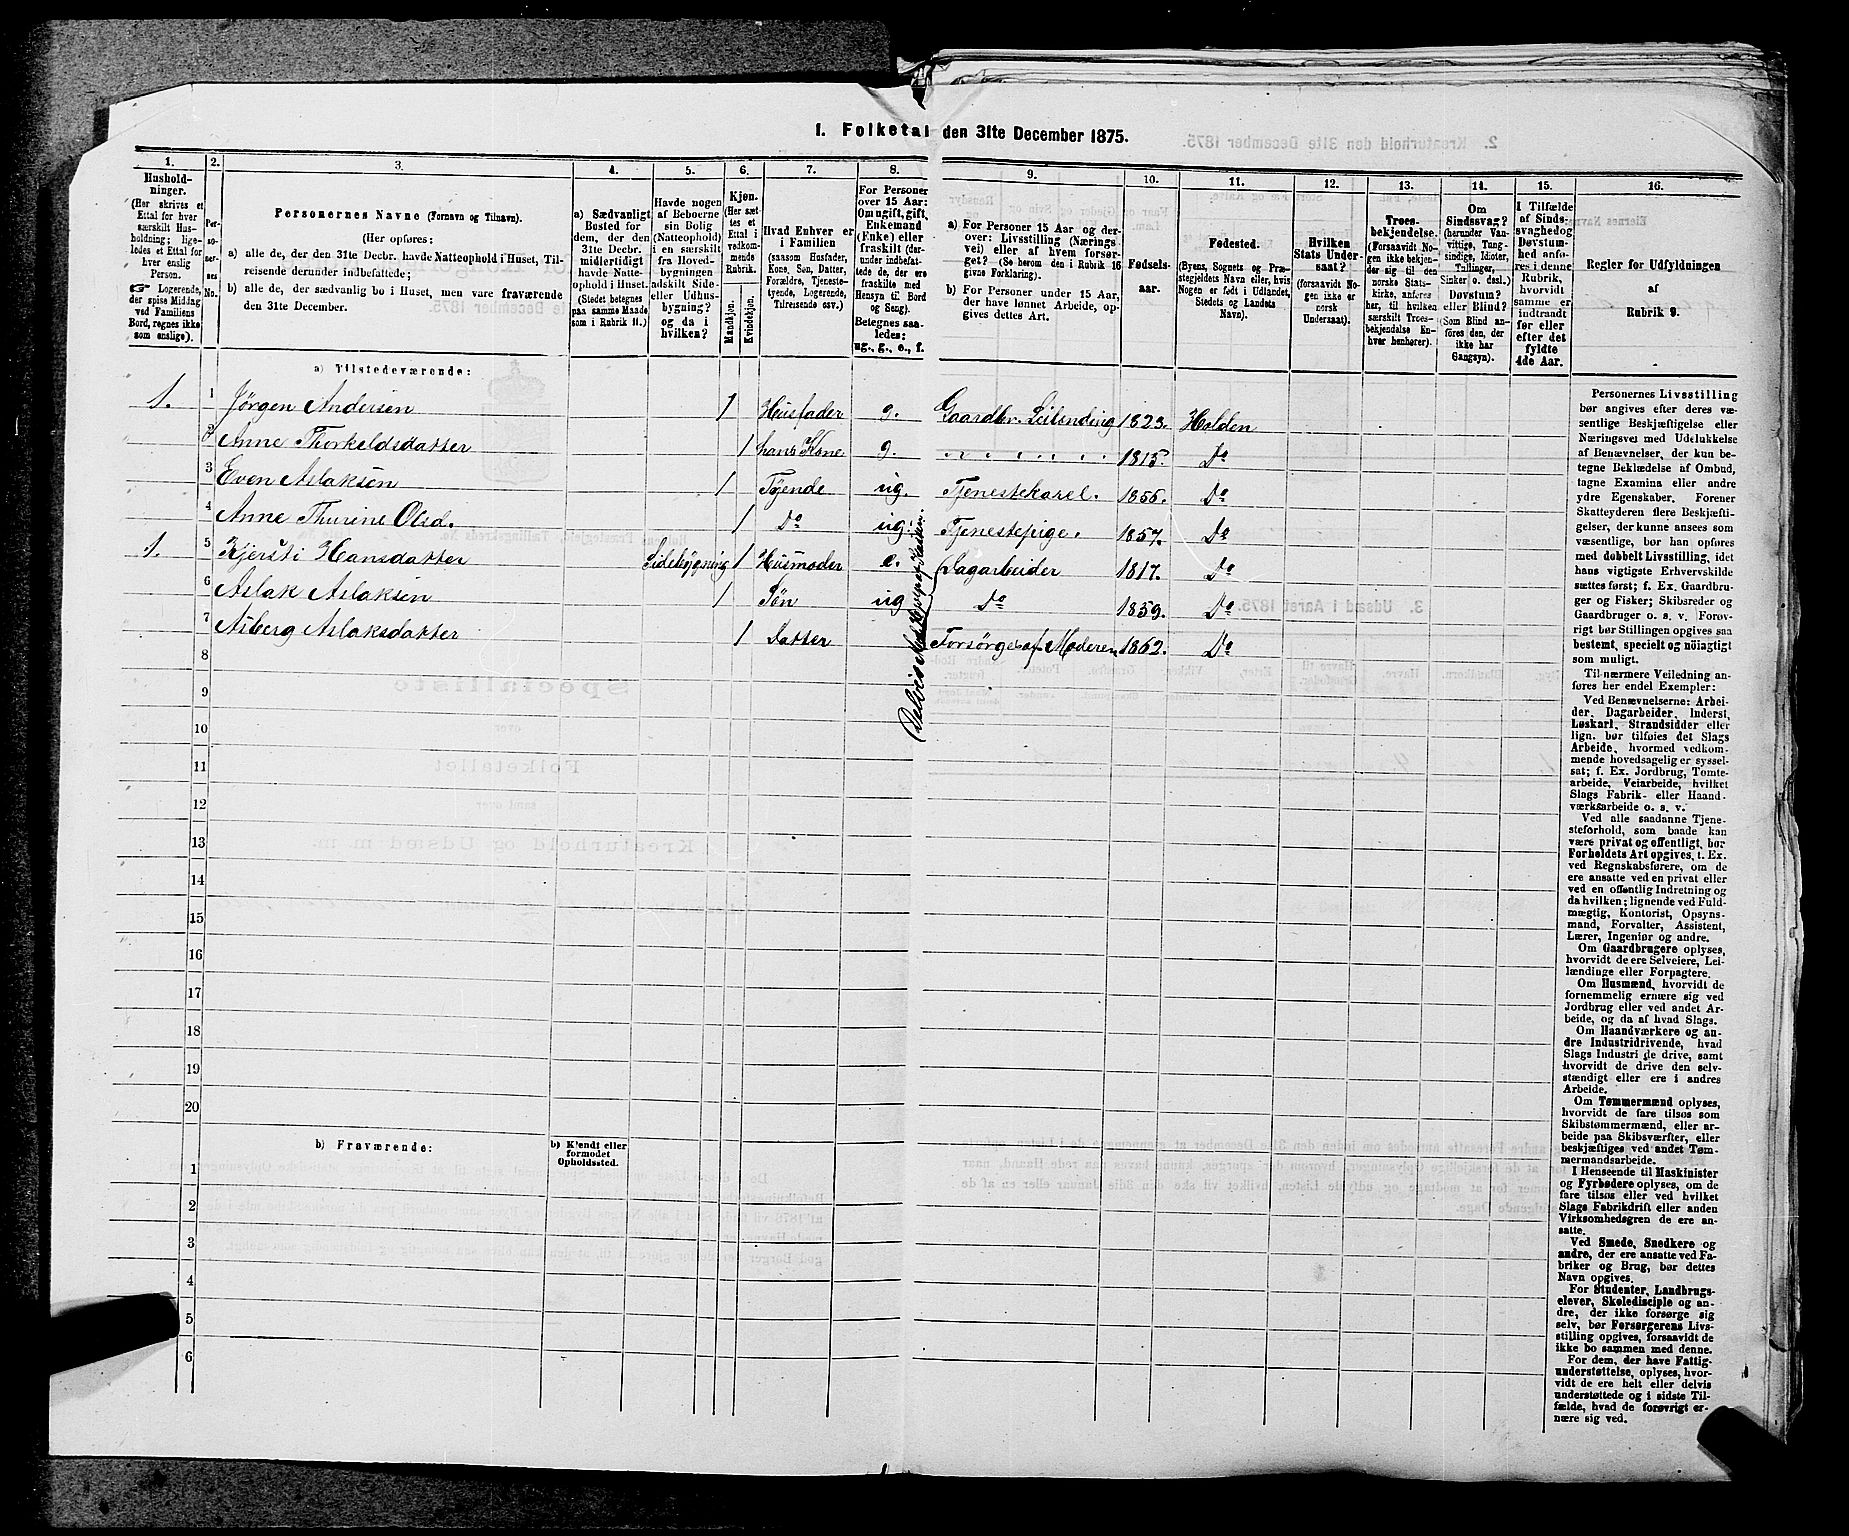 1. Folketal den 31te December 1875.
1. 2. 3. 4. 5. 6. 7. 8. 9. 10. 11. 12. 13. 14. 15. 16.
Hushold-
ninger.
(Her skrives et
Ettal for hver
særskilt Hus-
holdning; lige-
ledes et Ettal for
hver enslig
Person.
☞ Logerende,
der spise Middag
ved Familiens
Bord, regnes ikke
som enslige).
Per-
so-
ner-
nes
No.
Personernes Navne (Fornavn og Tilnavn).
(Her opføres:
a) alle de, der den 31te Decbr. havde Natteophold i Huset, Til-
reisende derunder indbefattede;
b) alle de, der sædvanlig bo i Huset, men vare fraværende
den 31te December.
a) Sædvanligt
Bosted for
dem, der den
31te Decbr.
midlertidigt
havde Natte-
ophold i Huset.
(Stedet betegnes
paa samme Maade
som i Rubrik 11.)
Havde nogen
af Beboerne
sin Bolig
(Natteophold)
i en særskilt
fra Hoved-
bygningen
adskilt Side-
eller Udhus-
bygning?
og da i
hvilken?
Kjøn.
(Her sæt-
tes et
Ettal i
vedkom-
mende
Rubrik.
Mandkjøn.
Kvindekjøn.
Hvad Enhver er
i Familien
(saasom Husfader,
Kone, Søn, Datter,
Forældre, Tjeneste-
tyende, Logerende,
Tilreisende osv.)
For Personer
over 15 Aar:
Om ugift, gift,
Enkemand
(Enke) eller
fraskilt (der-
under indbefat-
tede de, der ere
fraskilte med
Hensyn til Bord
og Seng).
Betegnes saa-
ledes:
ug., g., e., f.
a) For Personer 15 Aar og der-
over: Livsstilling (Nærings-
vei) eller af hvem forsør-
get? (Se herom den i Rubrik 16
givne Forklaring).
b) For Personer under 15 Aar,
der have lønnet Arbeide, op-
gives dettes Art.
Fødsels-
aar.
Fødested.
(Byens, Sognets og Præ-
stegjeldets Navn eller, hvis
Nogen er født i Udlandet,
Stedets og Landets
Navn).
Hvilken
Stats Under-
saat?
(forsaavidt No-
gen ikke er
norsk
Undersaat).
Troes-
bekjendelse.
(Forsaavidt No-
gen ikke bekjen-
der sig til den
norske Stats-
kirke, anføres
her, til hvilken
særskilt Troes-
bekjendelse En-
hver henhører).
Om
Sindssvag?
(herunder Van-
vittige, Tung-
sindige, Idioter,
Tullinger,
Sinker o. desl.)
Døvstum?
eller Blind?
(Som Blind an-
føres den, der
ikke har
Gangsyn).
I Tilfælde
af Sinds-
svaghed og
Døvstum-
hed anfø-
res i denne
Rubrik,
hvorvidt
samme er
indtraadt
før eller
efter det
fyldte
4de Aar.
Regler for Udfyldningen
af
Rubrik 9.
a) Tilstedeværende:
1. 1 Jörgen Andersen 1 Husfader g. Gaardbr. Leilending 1823. Holden
2 Anne Thorkeldsdatter 1 hans Kone g. " " " " " " 1815. Do
3 Even Aslaksen 1 Tyende ug. Tjenestekarl. 1855. Do
4 Anne Thurine Olsd. 1 Do ug. Tjenestepige. 1857. Do
1. 5 Kjersti Hansdatter Sidebygning 1 Husmoder e. Dagarbeider 1817. Do
6 Aslak Aslaksen 1 Søn ug Do 1859. Do
7 Asberg Aslaksdatter 1 Datter Forsörges af Moderen 1862. Do
8
9
10
11
12
13
14
15
16
17
18
19
20
b) Fraværende:
b) Kjendt eller
formodet
Opholdssted.
1
2
3
4
5
6
Personernes Livsstilling
bør angives efter deres væ-
sentlige Beskjæftigelse eller
Næringsvei med Udelukkelse
af Benævnelser, der kun be-
tegne Beklædelse af Ombud,
tagne Examina eller andre
ydre Egenskaber. Forener
Skatteyderen flere Beskjæfti-
gelser, der kunne ansees som
væsentlige, bør han opføres
med dobbelt Livsstilling, idet
hans vigtigste Erhvervskilde
sættes først; f. Ex. Gaardbru-
ger og Fisker; Skibsreder og
Gaardbruger o. s. v. Forøv-
rigt bør Stillingen opgives saa
bestemt, specielt og nøiagtigt
som muligt.
Til nærmere Veiledning an-
føres her endel Exempler:
Ved Benævnelserne: Arbei-
der, Dagarbeider, Inderst,
Løskarl, Strandsidder eller
lign. bør tilføies det Slags
Arbeide, hvormed vedkom-
mende hovedsagelig er syssel-
sat; f. Ex. Jordbrug, Tomte-
arbeide, Veiarbeide, hvilket
Slags Fabrik- eller Haand-
værksarbeide o. s. v.
Ved alle saadanne Tjene-
steforhold, som baade kan
være privat og offentligt, bør
Forholdets Art opgives, t. Ex.
ved Regnskabsførere, om de
ere ansatte ved en privat eller
ved en offentlig Indretning og
da hvilken; lignende ved Fuld-
mægtig, Kontorist, Opsyns-
mand, Forvalter, Assistent,
Lærer, Ingeniør og andre.
Om Gaardbrugere oplyses,
hvorvidt de ere Selveiere, Lei-
lændinge eller Forpagtere.
Om Husmænd, hvorvidt de
fornemmelig ernære sig ved
Jordbrug eller ved andet Ar-
beide, og da af hvad Slags.
Om Haandværkere og an-
dre Industridrivende, hvad
Slags Industri de drive, samt
hvorvidt de drive den selv-
stændigt eller ere i andres
Arbeide.
Om Tømmermænd oplyses,
hvorvidt de fare tilsøs som
Skibstømmermænd, eller ar-
beide paa Skibsværfter, eller
beskjæftiges ved andet Tøm-
mermandsarbeide.
I Henseende til Maskinister
og Fyrbødere oplyses, om de
fare tilsøs eller ved hvilket
Slags Fabrikdrift eller anden
Virksomhedsgren de ere an-
satte.
Ved Smede, Snedkere og
andre, der ere ansatte ved Fa-
briker og Brug, bør dettes
Navn opgives.
For Studenter, Landbrugs-
elever, Skoledisciple og an-
dre, der ikke forsørge sig
selv, bør Forsørgerens Livs-
stilling opgives, forsaavidt de
ikke bo sammen med denne.
For dem, der have Fattig-
understøttelse, oplyses, hvor-
vidt de ere helt eller delvis
understøttede og i sidste Til-
fælde, hvad de forøvrigt er-
nære sig ved.